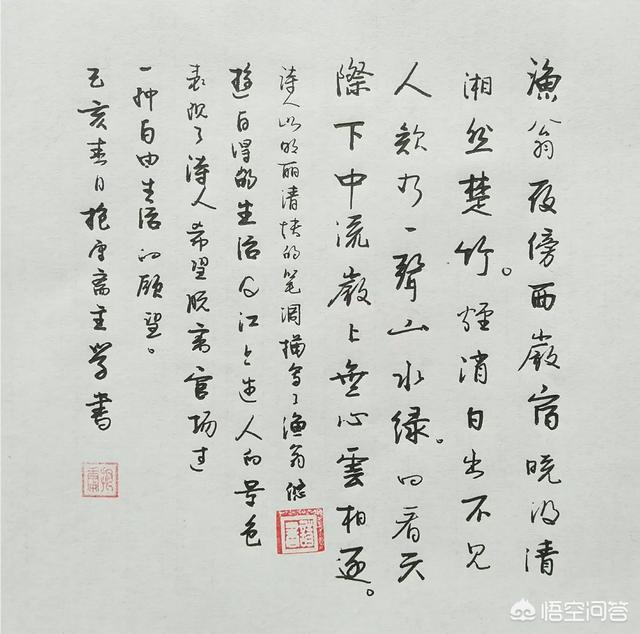 漁翁夜傍西巖宿曉汲清
湘然楚竹。煙消日出不见
人欸乃一聲山水绿。回看天
際下中流巖上無心雲相逐。
诗人以明丽清快的笔调描写了渔翁悠
遊自得的生活及江上迷人的景色
表现了诗人希望脱离官场过
一种自由生活的願望。
己亥春日抱雪斋主学書
悟空问答